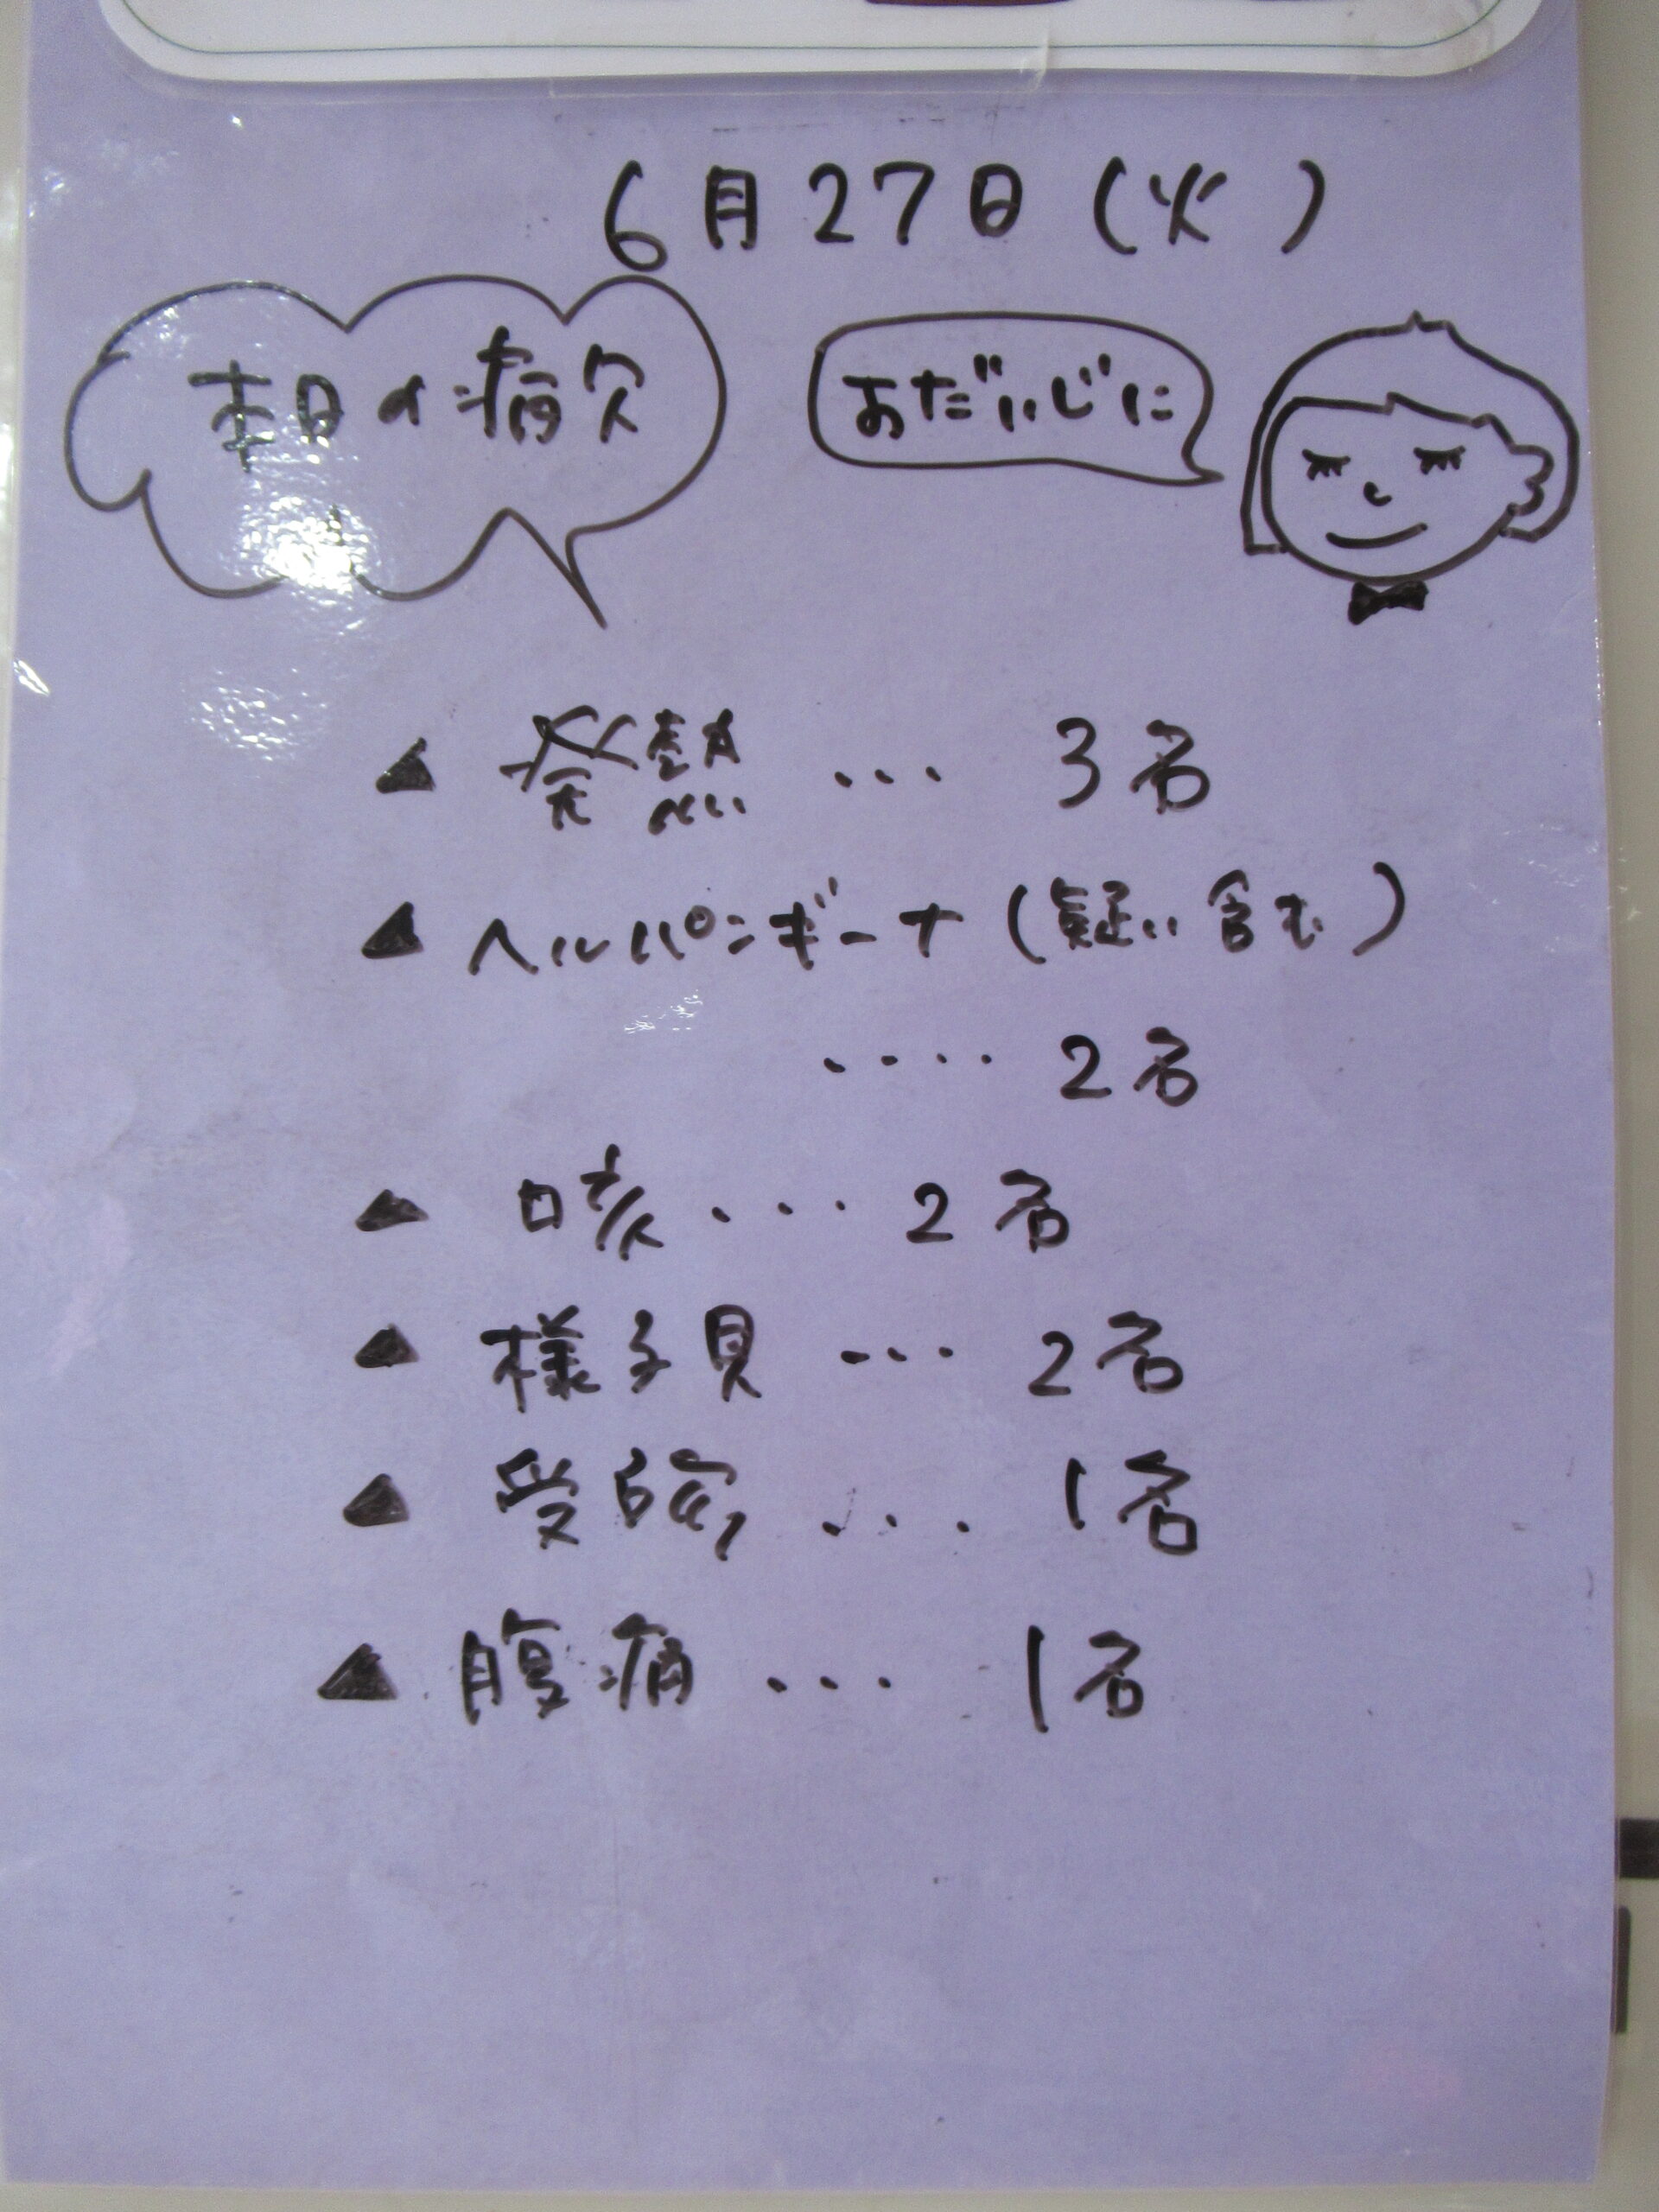 6月27日(火)
本日の病欠
おだいじに
▲ 発熱 … 3名
▲ ヘルパンギーナ(疑い含む)
‥‥ 2名
▲ 咳 … 2名
▲ 様子見 … 2名
▲ 受診 … 1名
▲ 腹痛 … 1名